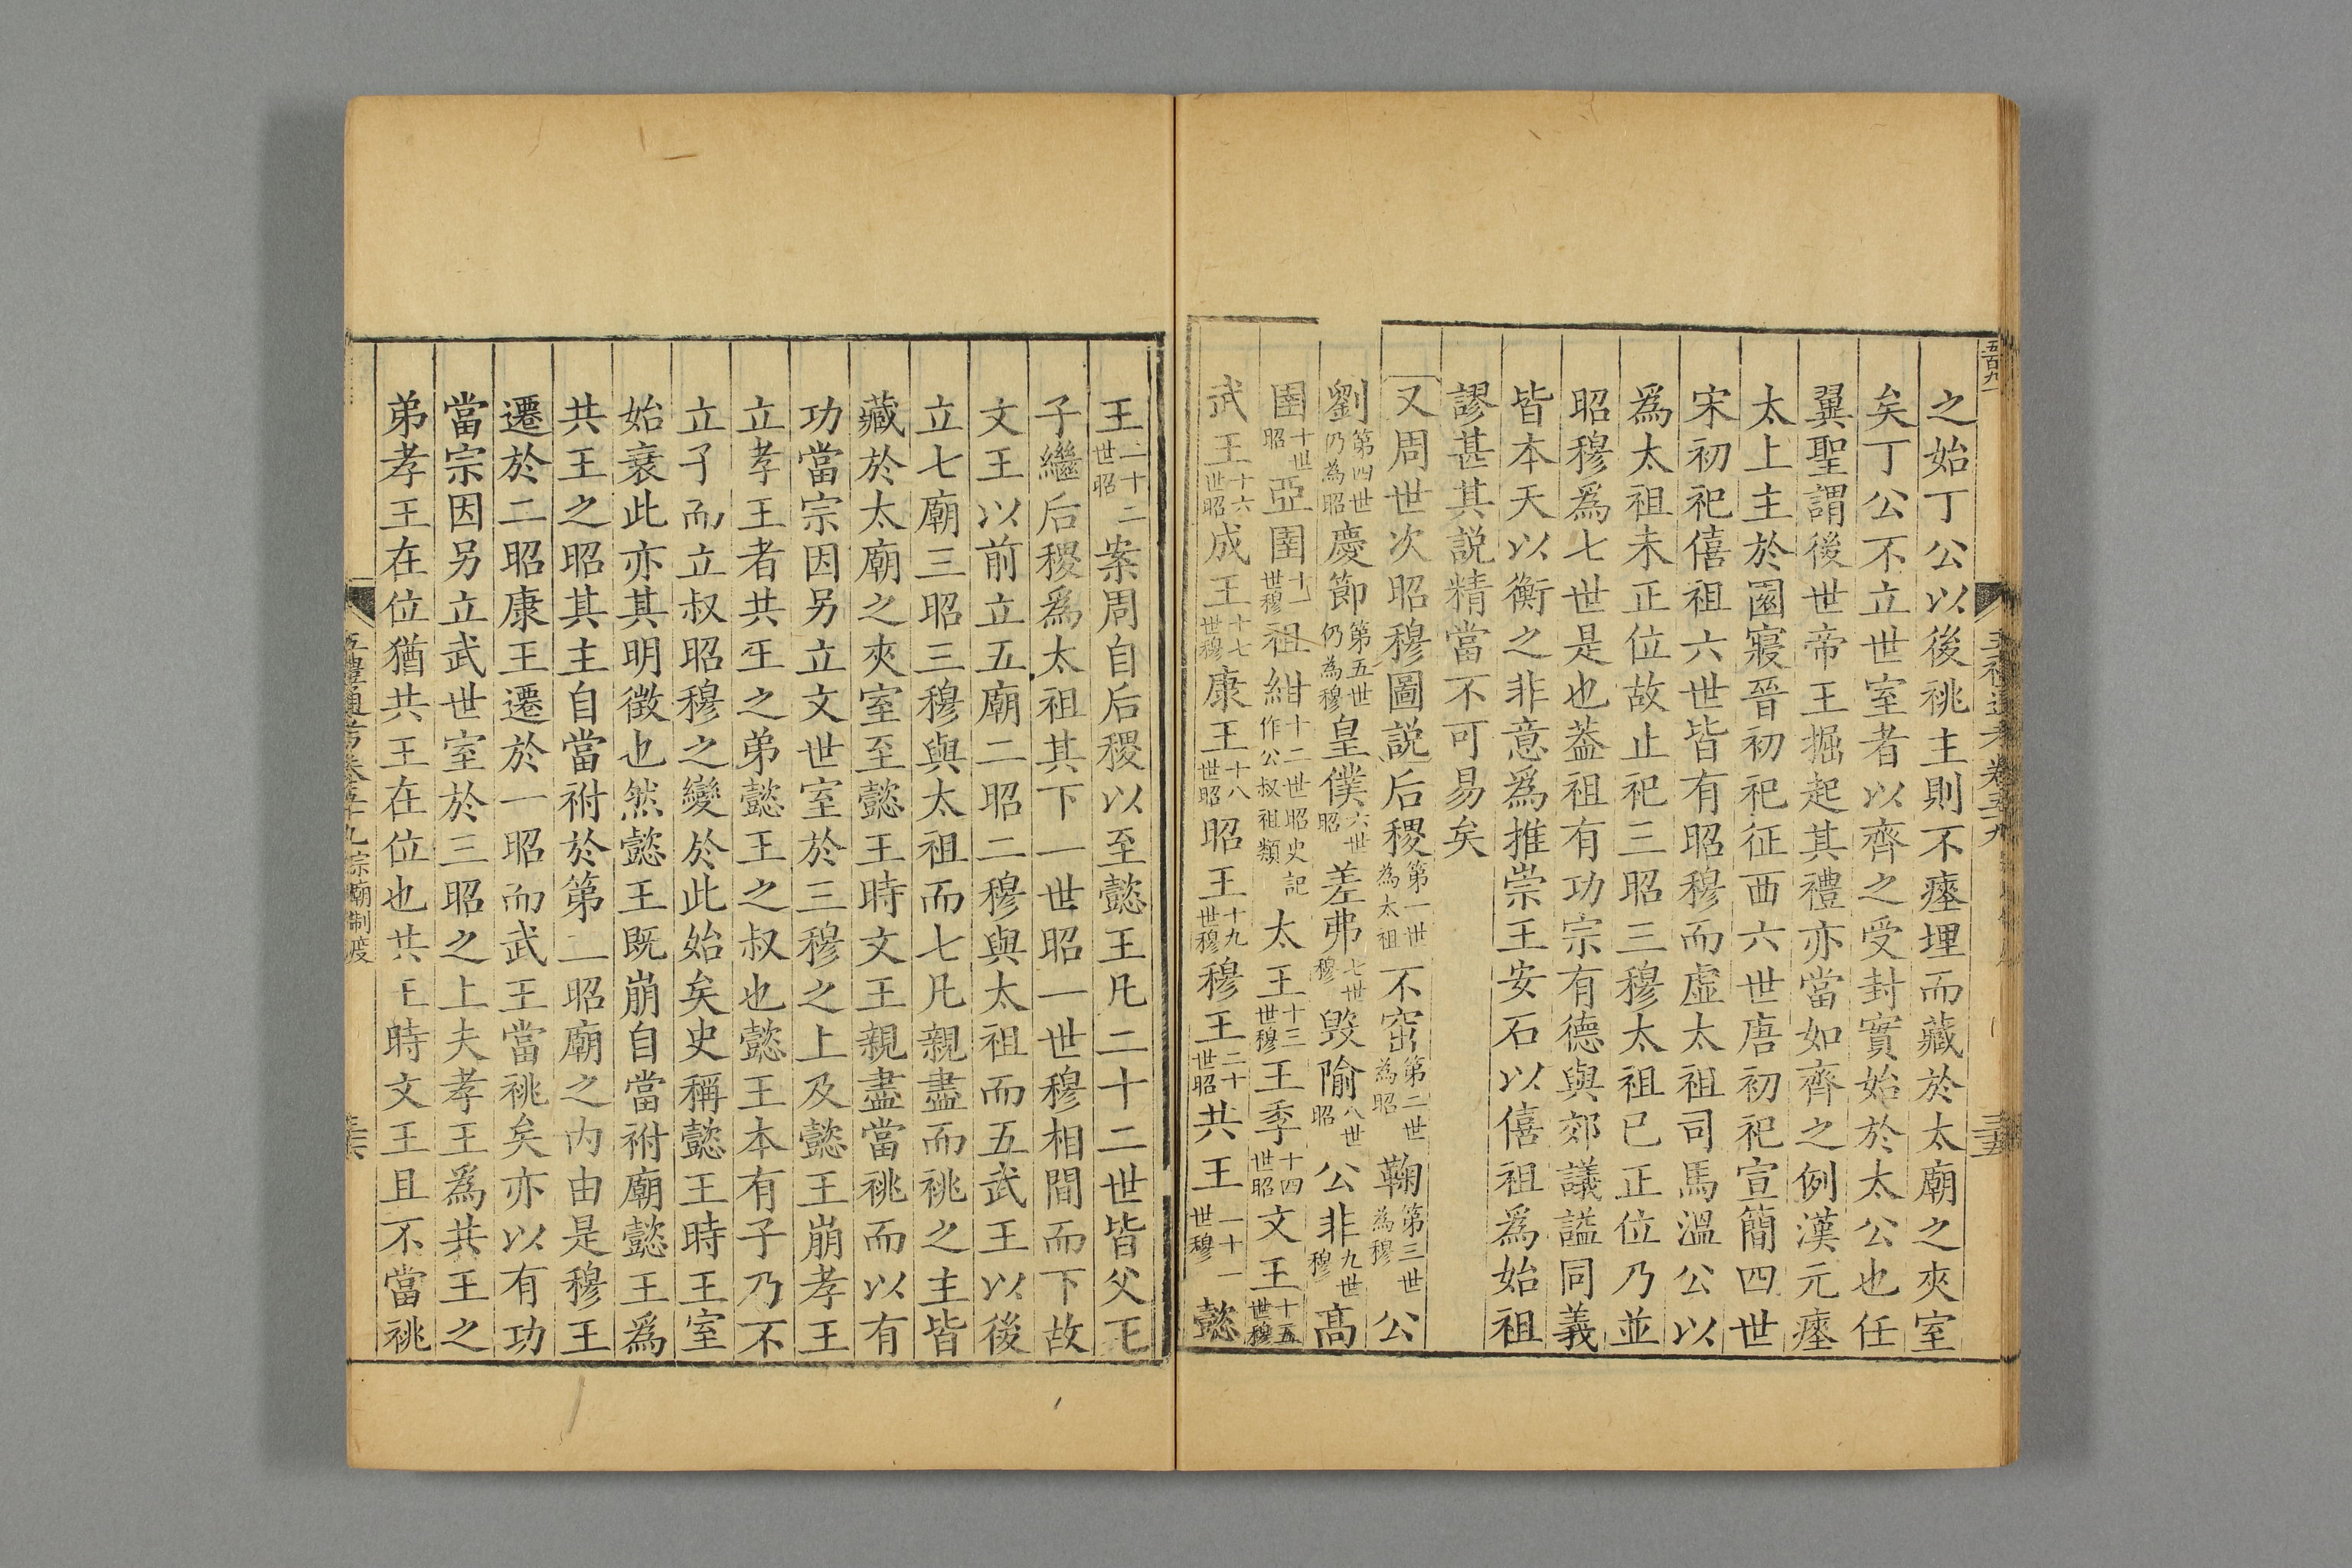 之始丁公以後祧主則不瘞埋而藏於太廟之夾室
矣丁公不立世室者以齊之受封實始於太公也任
翼聖謂後世帝王掘起其禮亦當如齊之例漢元瘞
太上主於園寢晉初祀征西六世唐初祀宣簡四世
宋初祀僖祖六世皆有昭穆而虛太祖司馬溫公以
為太祖未正位故止祀三昭三穆太祖已正位乃並
昭穆爲七世是也葢祖有功宗有德與郊議諡同義
皆本天以衡之非意爲推崇王安石以僖祖爲始祖
謬甚其説精當不可易矣
又周世次昭穆圖説后稷第一世為太祖不窋第二世為昭鞠第三世為穆公
劉第四世仍為昭慶節第五世仍為穆皇僕六世昭差弗七世穆毁隃八世昭公非九世穆高
圉十世昭亞圉十一世穆祖紺十二世昭史記作公叔祖類太王十三世穆王季十四世昭文王十五世穆
武王十六世昭成王十七世穆康王十八世昭昭王十九世穆穆王二十世昭共王二十一世穆懿
王二十二世昭案周自后稷以至懿王凡二十二世皆父死
子繼后稷爲太祖其下一世昭一世穆相間而下故
文王以前立五廟二昭二穆與太祖而五武王以後
立七廟三昭三穆與太祖而七凡親盡而祧之主皆
藏於太廟之夾室至懿王時文王親盡當祧而以有
功當宗因另立文世室於三穆之上及懿王崩孝王
立孝王者共王之弟懿王之叔也懿王本有子乃不
立子而立叔昭穆之變於此始矣史稱懿王時王室
始衰此亦其明徵也然懿王既崩自當祔廟懿王爲
共王之昭其主自當祔於第二昭廟之內由是穆王
遷於二昭康王遷於一昭而武王當祧矣亦以有功
當宗因另立武世室於三昭之上夫孝王爲共王之
弟孝王在位猶共王在位也共王時文王且不當祧
五禮通考卷五十九 宗廟制度